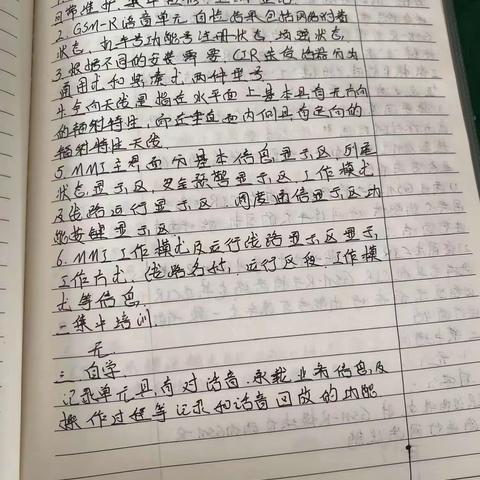 2. GSM-R话音单元自检结果包括网络附着
状态,机车号功能号注册状态,场强状态
3. 根据不同的安装需要,CIR连接设备分为
通用式和紧凑式两种型号
4. 全向天线是指在水平面上基本具有无方向
的辐射特性,而在垂直面内仅具有定向的
辐射特性天线
5 MMI主界面分基本信息显示区,列尾
状态显示区,安全预警显示区,工作模式
及线路运行显示区,调度通信显示区功
能按键显示区
6. MMI工作模式及运行线路显示区显示,
工作方式,线路名称,运行区段,工作模
式等信息
二集中培训.
无
三 自学
记录单元具有对话音,承载业务信息及
操作过程等记录和话音回放的功能